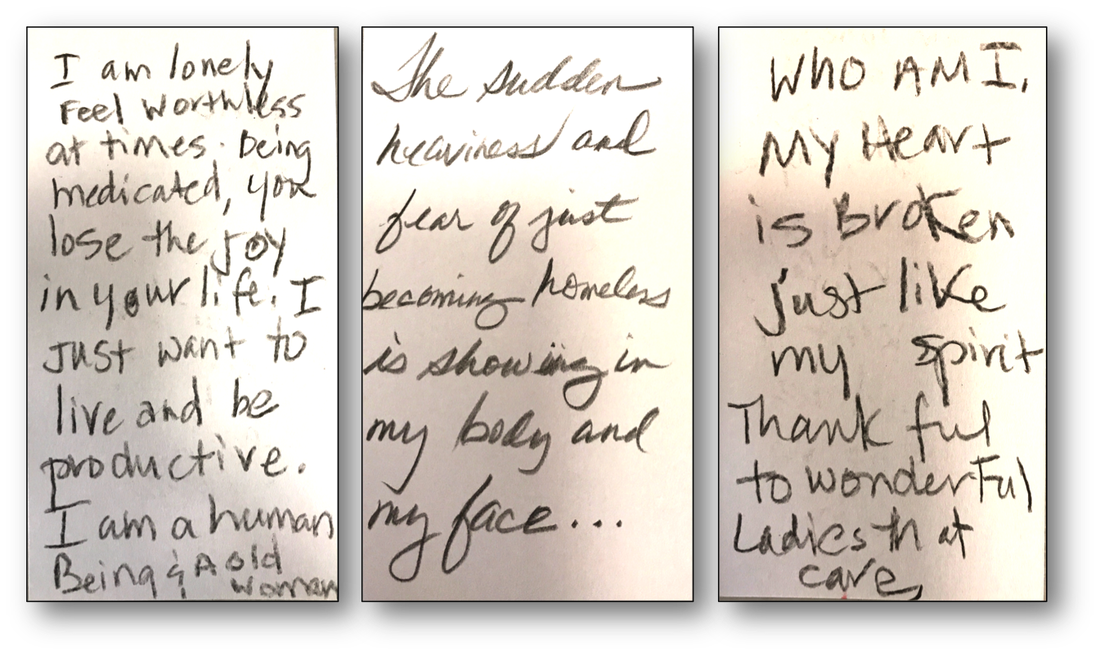 I am lonely
Feel Worthless
at times. Being
medicated, you
lose the joy
in your life. I
Just want to
live and be
productive.
I am a human
Being & A old
woman
The sudden
heaviness and
fear of just
becoming homeless
is showing in
my body and
my face...
WHO AM I.
MY Heart
is Broken
just like
my spirit
Thankful
to wonderful
Ladies that
care,